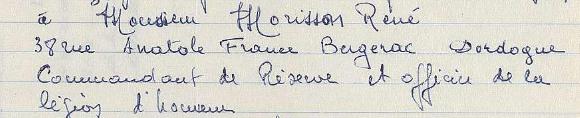 à Monsieur Morisson René
38 rue Anatole France Bergerac Dordogne
Commandant de Réserve et officier de la
légion d'honneur